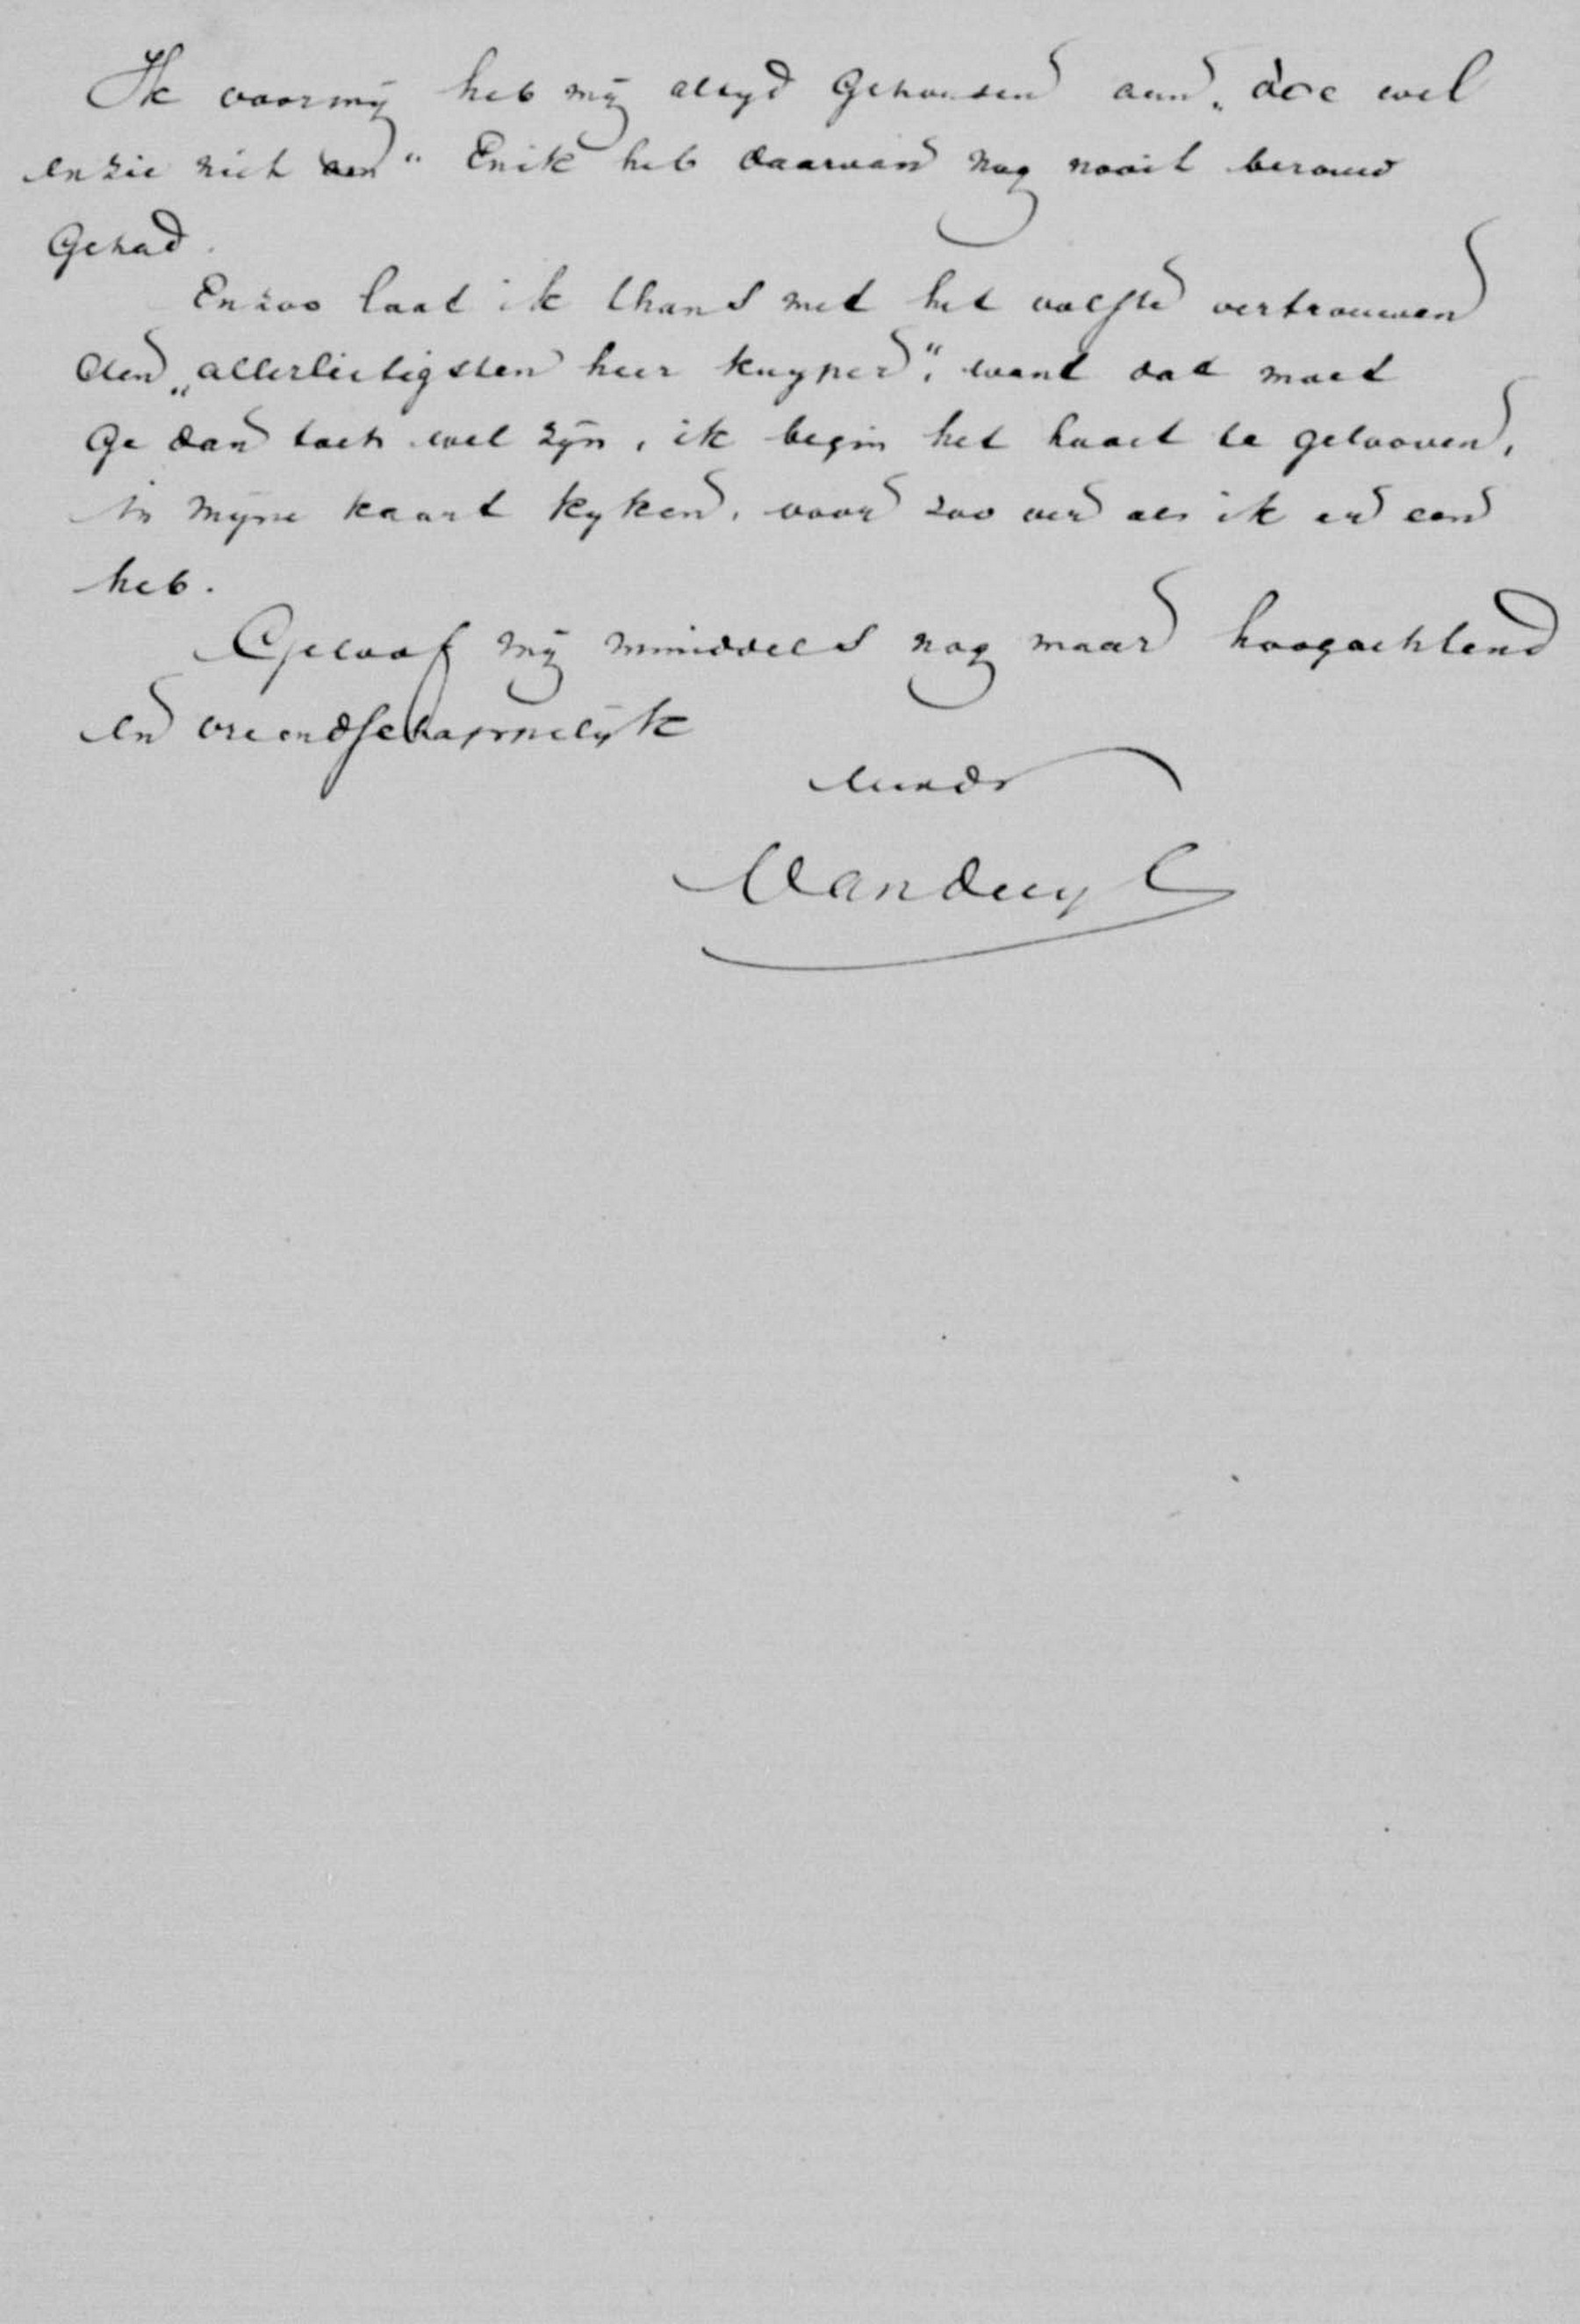 Ik voor mij heb mij altyd Gehouden aan „doe wel
en zie niet om“ En ik heb daarvan nog nooit berouw
Gehad.
En zoo laat ik thans met het volste vertrouwen
den „allerlietigsten heer Kuyper“, want dat moet
Ge dan toch wel zijn, ik begin het haast te gelooven,
in myne kaart kyken, voor zoo ver als ik er een
heb.
Geloof mij inmiddels nog maar hoogachtend
en vriendschappelyk